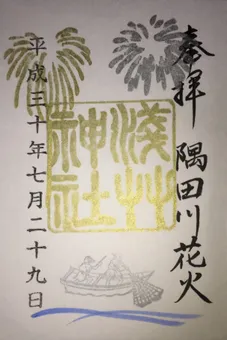 奉拝 隅田川花火
淺草神社
平成三十年七月二十九日